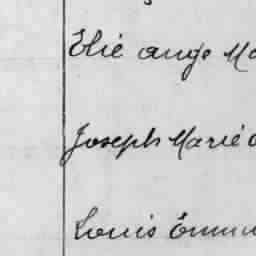 Elie ange Ma
Joseph Marie
Louis Emm